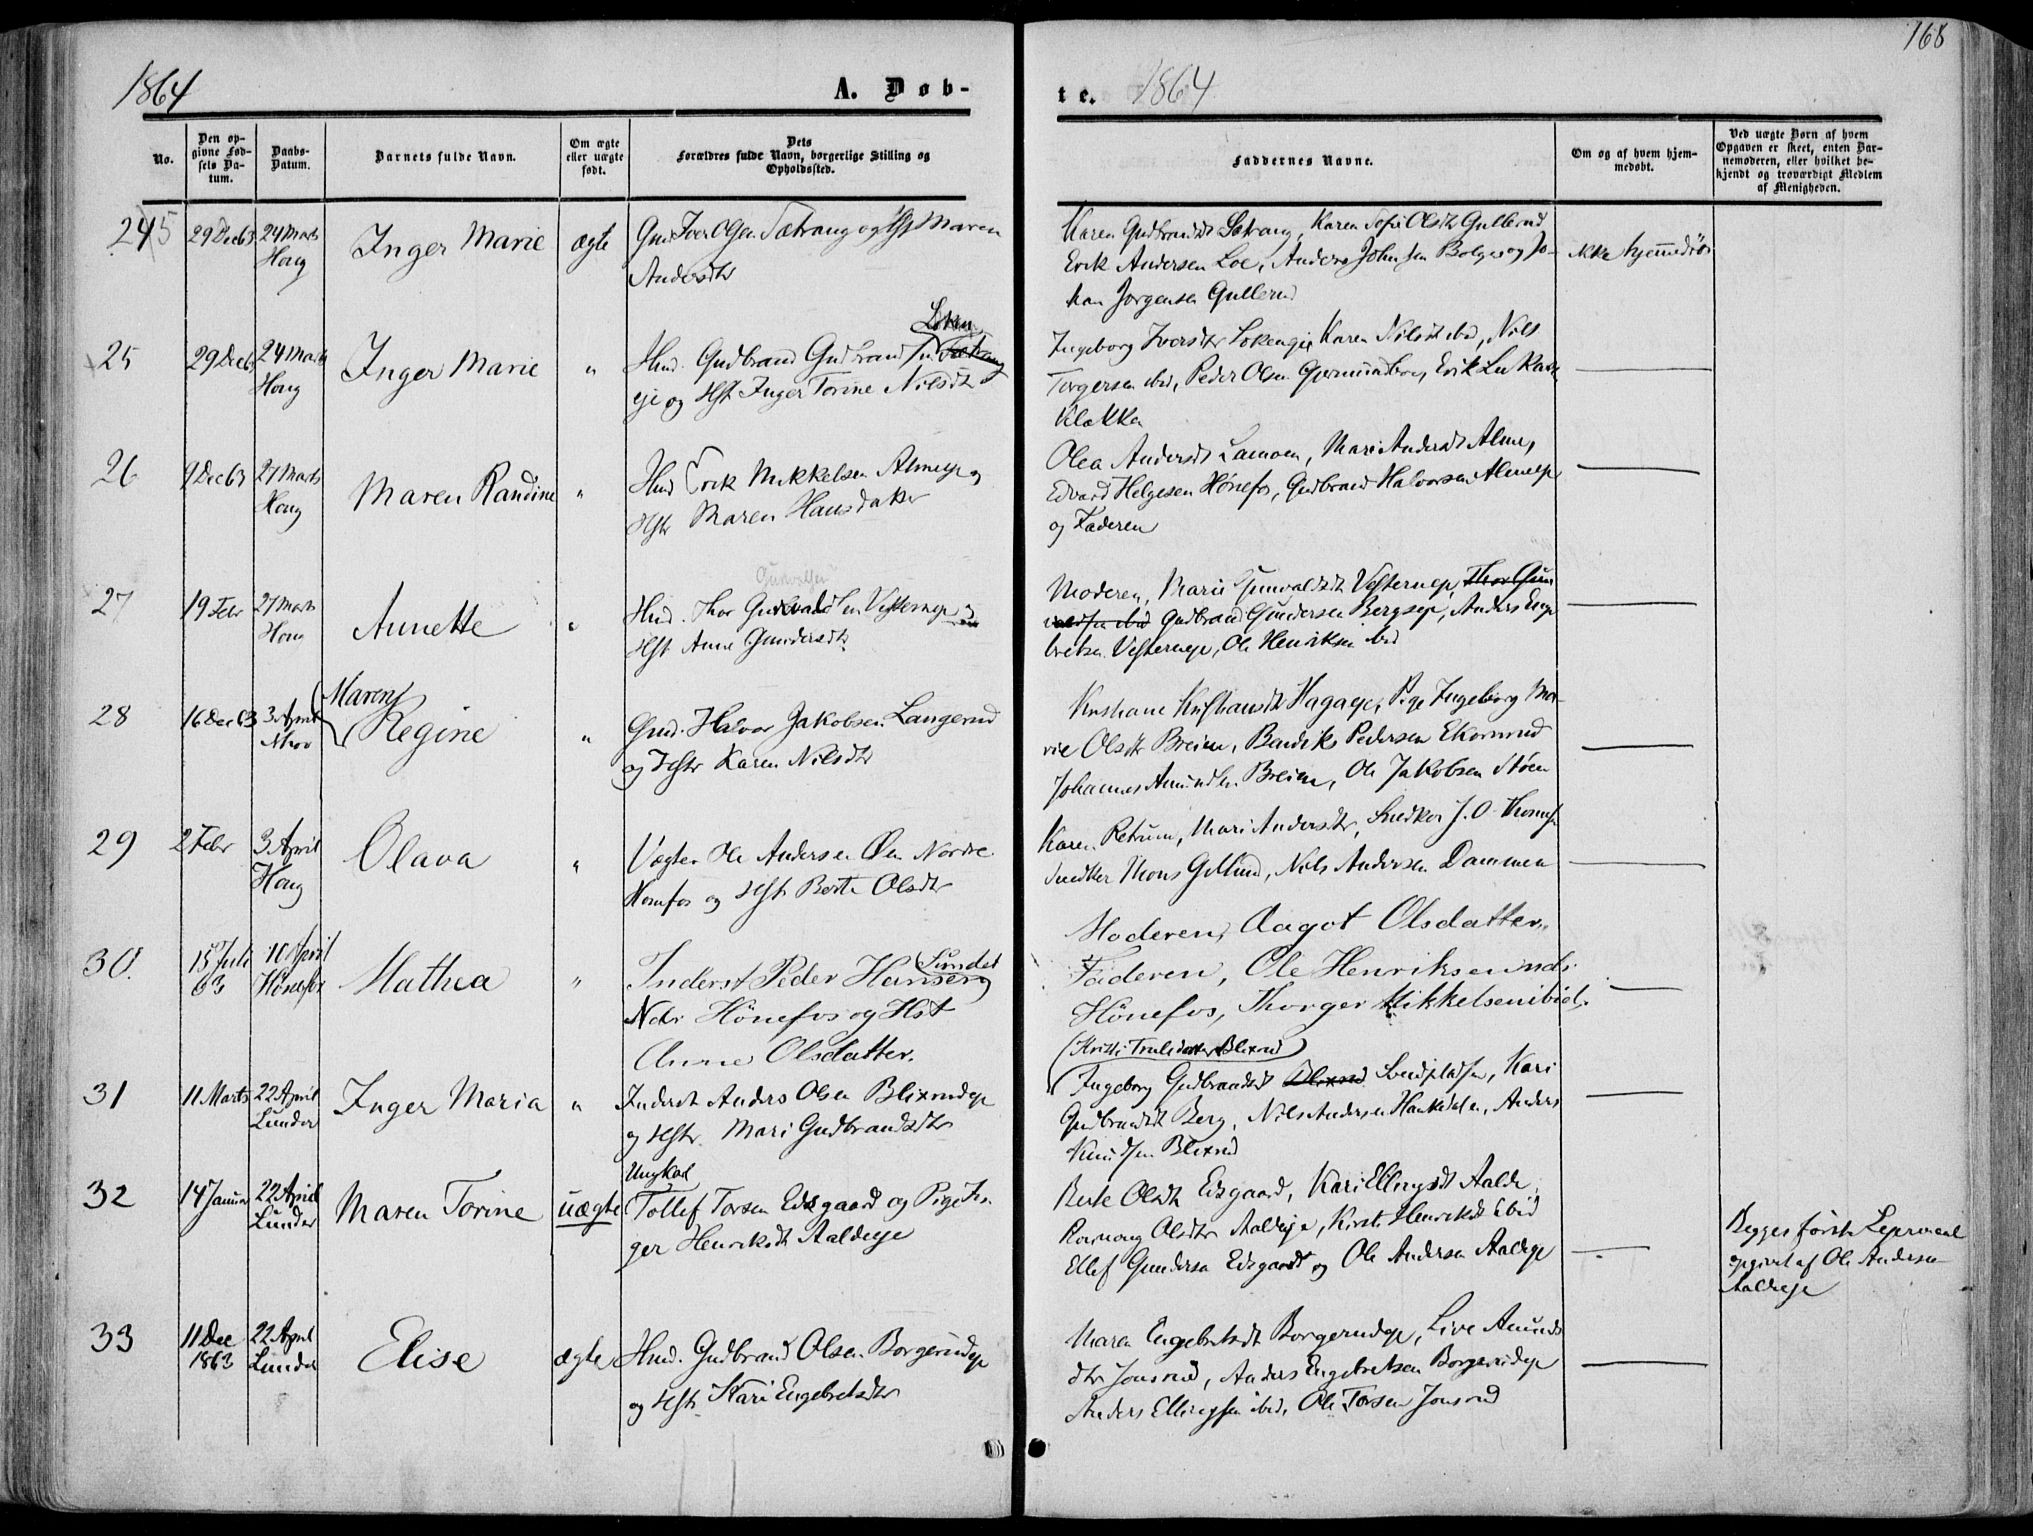 168
1864
A. Døb-
te. 1864
No.
Den op-
givne Fød-
sels Da-
tum.
Daabs-
Datum.
Barnets fulde Navn.
Om ægte
eller uægte
født.
Dets
Forældres fulde Navn, borgerlige Stilling og
Opholdssted.
Faddernes Navne.
Om og af hvem hjem-
medøbt.
Ved uægte Børn af hvem
Opgaven er skeet, enten Bar-
nemoderen, eller hvilket be-
kjendt og troværdigt Medlem
af Menigheden.
24
29 Dec 63
24 Marts
Houg
Inger Marie
ægte
Iver Olsen Sætrang og Hst Maren
Andersdtr
Karen Gudbrandsdt Sætrang, Karen Sofie Olsdt Gullerud
Erik Andersen Loe, Anders Johnsen Bolger og Jo-
han Jørgensen Gullerud
ikke hjemmedøbt
25
29 Dec 63
24 Marts
Houg
Inger Marie
"
Løken
Hmd. Gudbrand Gudbrandsen Sætrang
eje og Hst Inger Torine Nilsdt
Ingeborg Iversdtr Løkeneje, Karen Nilsdt ibid, Nils
Torgersen ibid, Peder Olsen Gjermundbo, Erik
Klækken
26
9 Dec 63
27 Marts
Houg
Maren Randine
"
Hmd Erik Mikkelsen Almeje og
Hstr Maren Hansdatter
Olea Andersdt Lamoen, Mari Andersdt Alme,
Edvard Helgesen Hønefos, Gudbrand Halvorsen Almeeje
og Faderen
27
19 Febr
27 Marts
Houg
Annette
"
Gunvalsen
Hmd. Thor Gunvaldsen Vesterneje og
Hst Anne Gundersdtr
Moderen, Marie Gunvaldsdt Vesterneje, Thor Gun
valdsen ibid Gudbrand Gundersen Bergseje, Anders Enge
bretsen Vesterneje, Ole Henriksen ibid
28
16 Dec 63
3 April
Maren
Regine
"
Gmd. Halvor Jakobsen Langerud
og Hstr Karen Nilsdtr
Kristiane Kristiansdt Hagaeje, Pige Ingeborg Ma-
rie Olsdtr Breien, Bendik Pedersen Ekornrud
Johannes Amundsen Breien, Ole Jakobsen Støen
29
2 Febr
3 April
Houg
Olava
"
Vægter Ole Andersen Øen Nordre
Hønefos og Hst Berte Olsdtr
Karen Petrum, Mari Andersdtr, Snedker J. O. Thoms
Snedker Mons Gillund, Nils Andersen Dammen
30.
15 Juli
63
10 April
Hönefos
Mathea
"
Sundet
Inderst Peder Hansen
Ndr Hönefos og Hst
Anne Olsdatter.
Moderen, Aagot Olsdatter,
Faderen, Ole Henriksen Nds.
Hönefos, Thorger Mikkelsen ibid.
31
11 Marts
22 April
Lunder
Inger Maria
"
Inderst Anders Olsen Blixrudeje
og Hstr. Mari Gudbrandsdtr
(Kristi Trulsdatter Blixrud)
Ingeborg Gudbrandsdt Blixrud Svendpladsen, Kari
Gudbrandsdt Berg, Nils Andersen Hankedalen, Anders
Knudsen Blixrud
32
14 Januar
22 April
Lunder
Maren Torine
uægte
Ungkarl
Tollef Torsen Eidsgaard og Pige In-
ger Henriksdt Aaldeje
Berte Olsdt Eidsgaard, Kari Ellingsdt Aalde
Rønnoug Olsdtr Aaldeje, Kirsti Henriksdt Ebid
Ellef Gundersen Eidsgaard og Ole Andersen Aaldeje
Begges første Leiermaal
opgivet af Ole Andersen
Aaldeje
33
11 Dec
1863
22 April
Lunder
Elise
ægte
Hmd. Gudbrand Olsen Borgerudeje
og Hstr Kari Engebretsdtr
Maren Engebretsdt Borgerudeje, Live Amunds
dtr Jonsrud, Anders Engebretsen Borgerudeje
Anders Ellingsen ibid, Ole Torsen Jonsrud